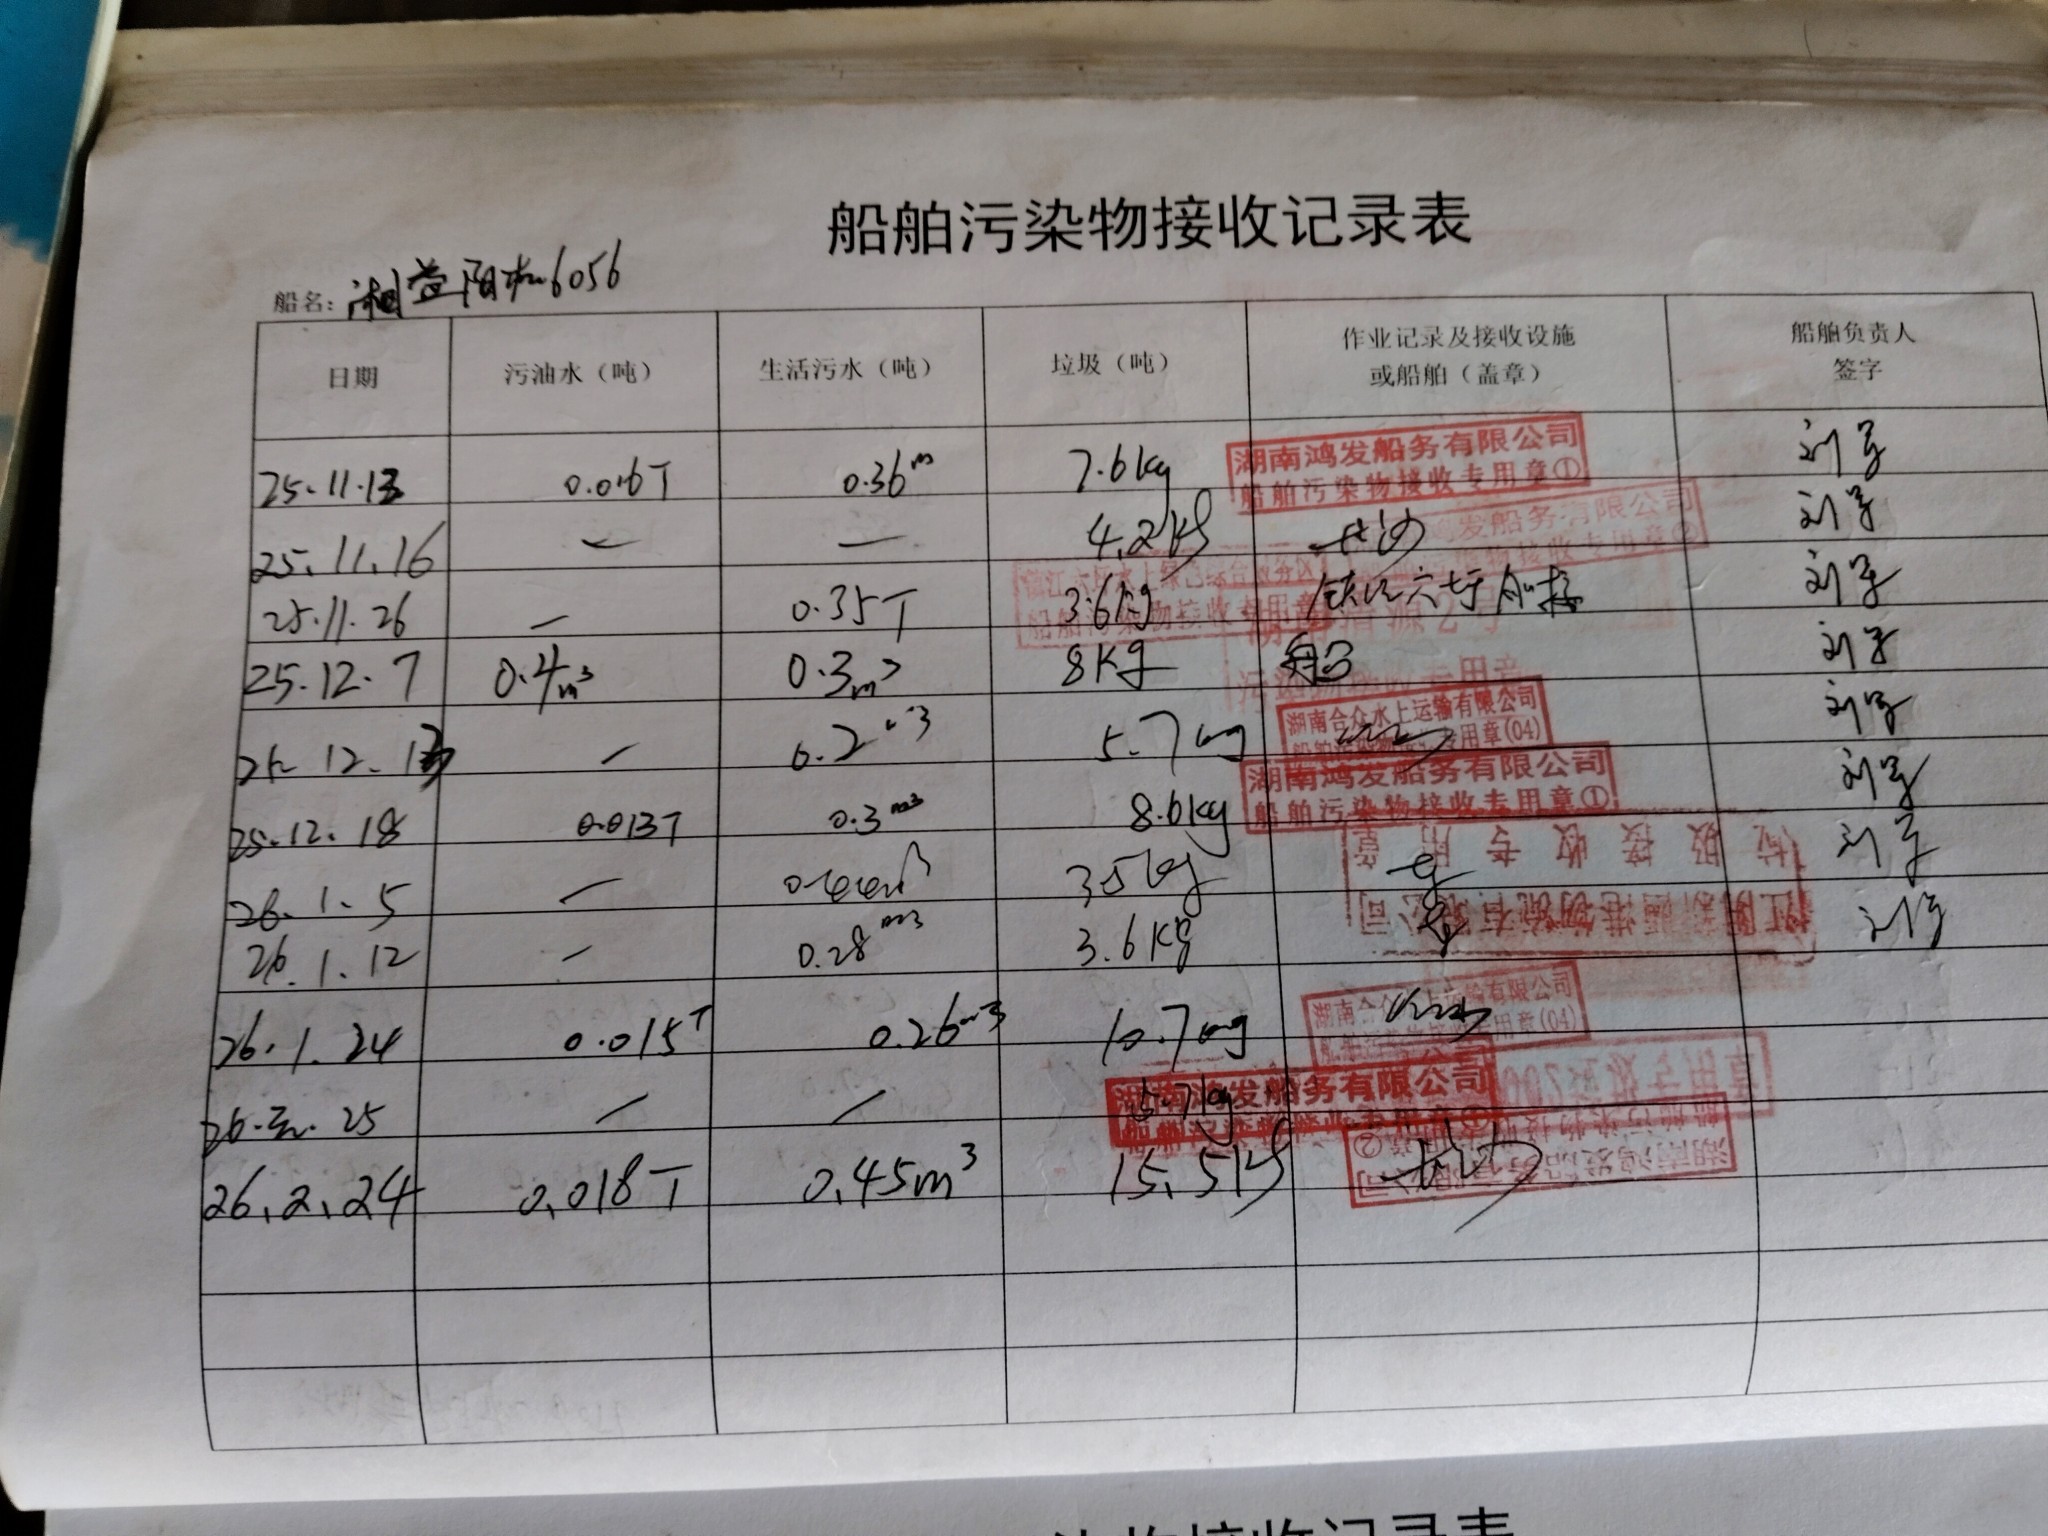 船舶污染物接收记录表
船名：湘益阳机6056
日期 污油水（吨） 生活污水（吨） 垃圾（吨） 作业记录及接收设施或船舶（盖章） 船舶负责人签字
25.11.13 0.016T 0.36m 7.6kg 湖南鸿发船务有限公司 船舶污染物接收专用章① 刘军
25.11.16 — — 4.2kg 长沙 鸿发船务有限公司 物接收专用章② 刘军
25.11.26 — 0.35T 3.6kg 镇江六圩 船舶污染物接收专用章 刘军
25.12.7 0.4m³ 0.3m³ 8Kg 刘军
12.13 — 0.2m³ 5.7kg 湖南合众水上运输有限公司 专用章(04) 刘军
25.12.18 0.013T 0.3m³ 8.6kg 湖南鸿发船务有限公司 船舶污染物接收专用章① 刘军
26.1.5 — 垃圾接收专用章 刘军
26.1.12 — 0.28m³ 3.6Kg 刘军
26.1.24 0.015T 0.26m³ 10.7kg 湖南合众水上运输有限公司 专用章(04)
25 — — 湖南鸿发船务有限公司
26.2.24 0.018T 0.45m³ 15.5kg 长沙
接收记录表